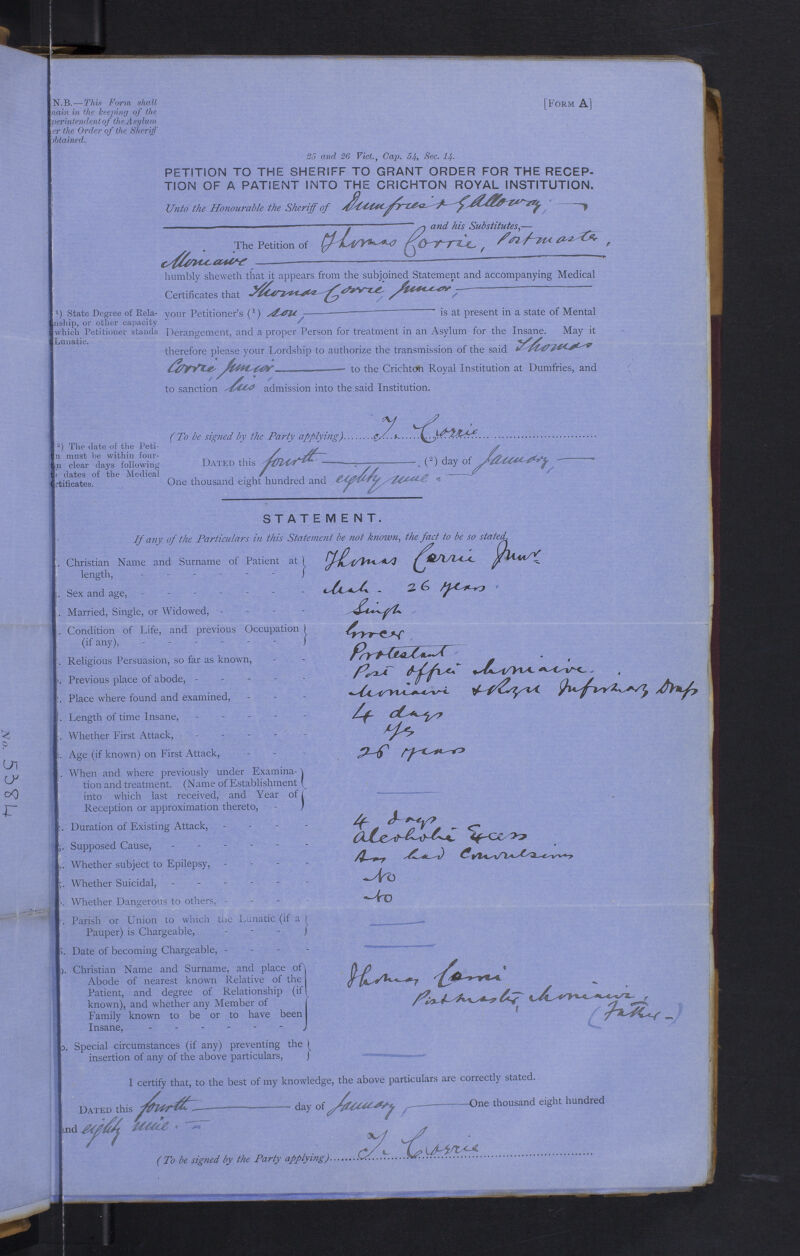 N.B.—This Form shall
in the keeping of the
of the Asylum
the Order of the Sheriff
obtained.
[FORM A]
25 and 26 Vict., Cap. 54, Sec. 14.
PETITION TO THE SHERIFF TO GRANT ORDER FOR THE RECEP-
TION OF A PATIENT INTO THE CRICHTON ROYAL INSTITUTION.
Unto the Honourable the Sheriff of Dumfries & Galloway,
and his Substitutes,—
The Petition of Thomas Corrie, Postmaster,
Moniaive
humbly sheweth that it appears from the subjoined Statement and accompanying Medical
Certificates that Thomas Corrie Junior,
¹) State Degree of Rela-
or other capacity
which Petitioner stands
Lunatic.
your Petitioner's (¹) son, is at present in a state of Mental
Derangement, and a proper Person for treatment in an Asylum for the Insane. May it
therefore please your Lordship to authorize the transmission of the said Thomas
Corrie Junior to the Crichton Royal Institution at Dumfries, and
to sanction his admission into the said Institution.
(To be signed by the Party applying) T. Corrie
²) The date of the Peti-
must be within four-
clear days following
dates of the Medical
DATED this fourth (²) day of January,
One thousand eight hundred and eighty nine.
STATEMENT.
If any of the Particulars in this Statement be not known, the fact to be so stated.
Christian Name and Surname of Patient at
length, Thomas Corrie Junr
Sex and age, Male - 26 years
Married, Single, or Widowed, Single
Condition of Life, and previous Occupation
(if any), Grocer
Religious Persuasion, so far as known, Protestant
Previous place of abode, Post Office Moniaive.
Place where found and examined, Moniaive & Royal Infirmary Dmfs
Length of time Insane, 4 days
Whether First Attack, Yes
Age (if known) on First Attack, 26 years
When and where previously under Examina-
tion and treatment. (Name of Establishment
into which last received, and Year of
Reception or approximation thereto,
Duration of Existing Attack, 4 days
Supposed Cause, Alcoholic Excess
Whether subject to Epilepsy, has had Convulsions
Whether Suicidal, No
Whether Dangerous to others, No
Parish or Union to which the Lunatic (if a
Pauper) is Chargeable,
Date of becoming Chargeable,
Christian Name and Surname, and place of
Abode of nearest known Relative of the
Patient, and degree of Relationship (if
known), and whether any Member of
Family known to be or to have been
Insane,
Thomas Corrie
Postmaster, Moniaive,
(Father -)
Special circumstances (if any) preventing the
insertion of any of the above particulars,
I certify that, to the best of my knowledge, the above particulars are correctly stated.
DATED this fourth day of January, One thousand eight hundred
and eighty nine.
(To be signed by the Party applying) T. Corrie
No. 5384